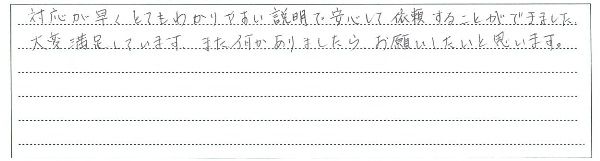 対応が早く、とてもわかりやすい説明で安心して依頼することができました。
大変満足しています。また何かありましたら、お願いしたいと思います。